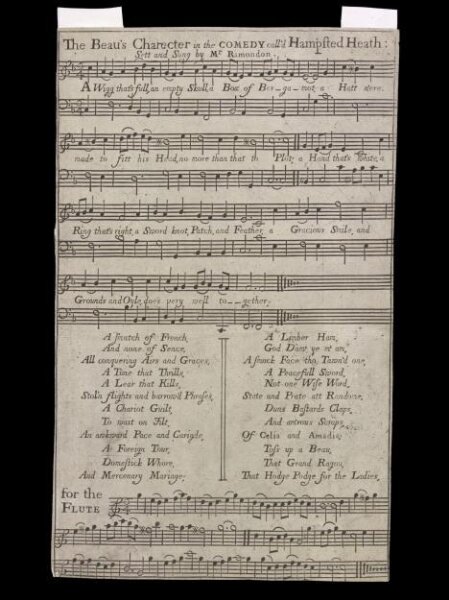 The Beau's Charecter in the COMEDY call'd Hampsted Heath:
Sett and Sung by Mr Ramondon.
A Wigg that's full, an empty Skull, a Box of Ber-ga-mot, a Hatt were
made to fitt his Head, no more than that th' Plate, a Hand that's White, a
Ring that's right, a Sword knot, Patch, and Feather, a Gracious Smile, and
Grounds and Oyle, does very well to--gether;
A smatch of French,
And none of Sence,
All conquering Airs and Graces,
A Tune that Thrills,
A Lear that Kills,
Stol'n flights and borrow'd Phrases,
A Chariot Guilt,
To wait on Jilt,
An awkward Pace and Carigde,
A Foreign Tour,
Domestick Whore,
And Mercenary Mariage;
A Limber Ham,
God Dam ye m'am,
A Face tho, Tann'd one,
A Peacefull Sword,
Not one Wise Word,
State and Prate att Randone,
Duns Bastards Claps,
And am'rous Scraps
Of Celia and Amadis,
Toss up a Beau,
That Grand
That Hodge Podge for the Ladies.
for the
FLUTE